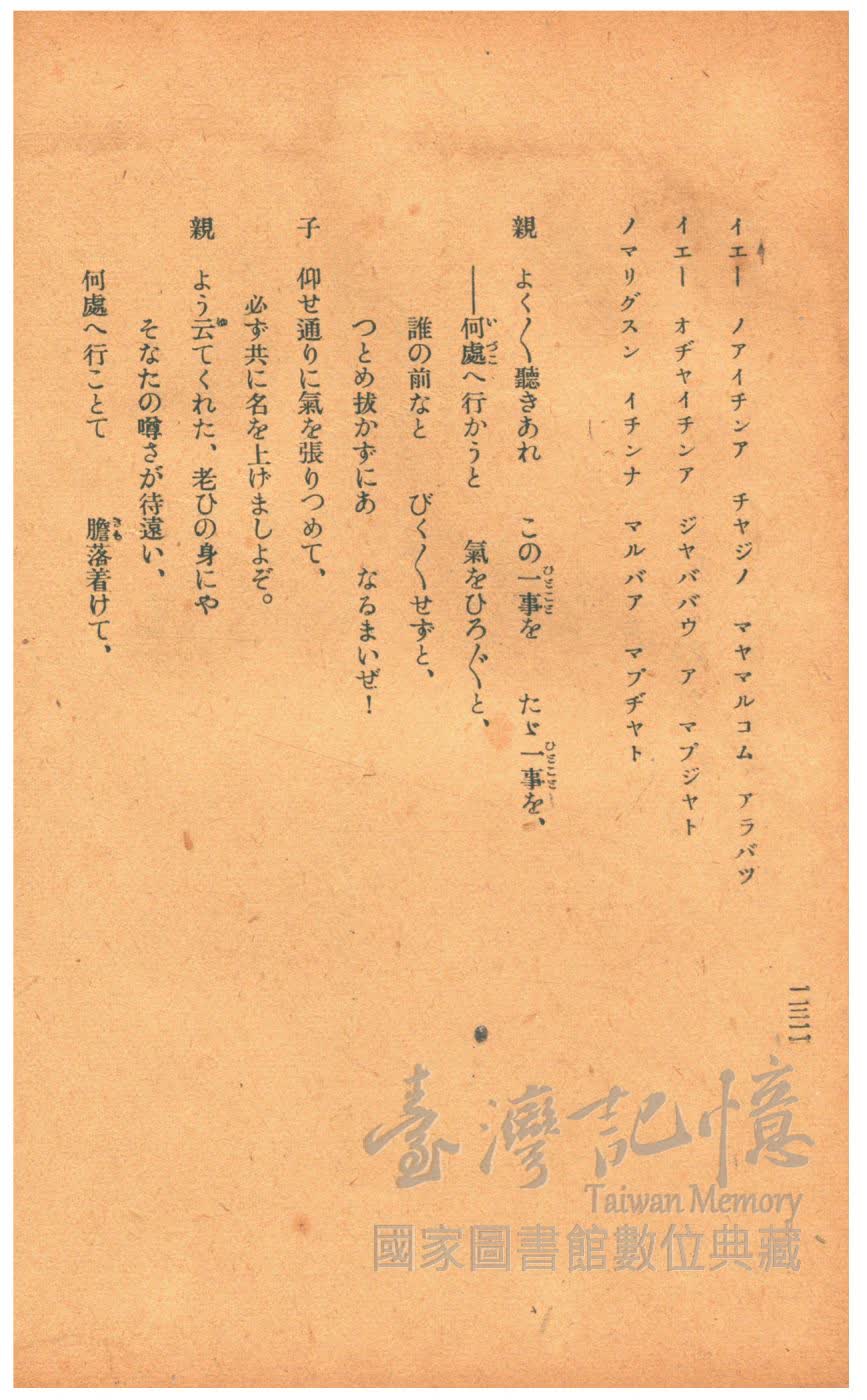 イエー ノアイチンア チヤジノ マヤマルコム アラバツ
イエー オヂヤイチンア ジヤババウ ア マプジヤト
ノマリグスン イチンナ マルバア マプヂヤト
親 よく〱聽きあれ この一事を たゞ一事を、
――何處へ行かうと 氣をひろ〲と、
誰の前なと びく〱せずと、
つとめ拔かずにあ なるまいぜ！
子 仰せ通りに氣を張りつめて、
必ず共に名を上げましよぞ。
親 よう云てくれた、老ひの身にや
そなたの噂さが待遠い、
何處へ行ことて 膽落着けて、
一三二
臺灣記憶
Taiwan Memory
國家圖書館數位典藏